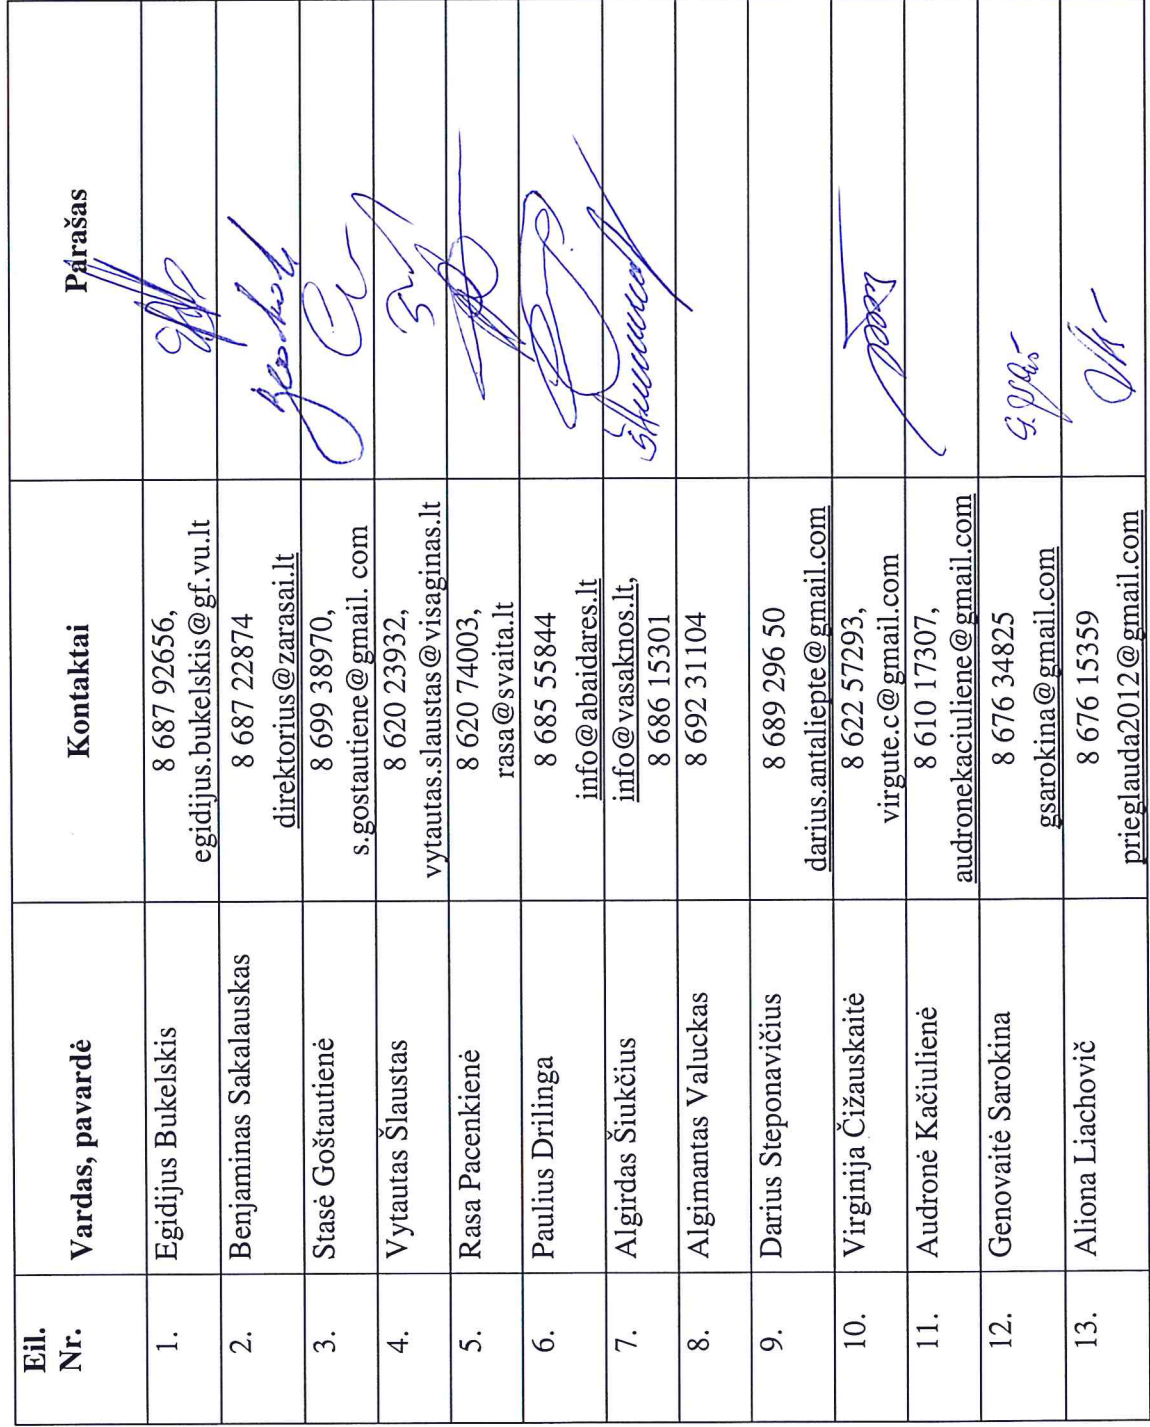 Eil.
Nr.
Vardas, pavardė
Kontaktai
Parašas
1.
Egidijus Bukelskis
8 687 92656,
egidijus.bukelskis@gf.vu.lt
2.
Benjaminas Sakalauskas
8 687 22874
direktorius@zarasai.lt
3.
Stasė Goštautienė
8 699 38970,
s.gostautiene@gmail. com
4.
Vytautas Šlaustas
8 620 23932,
vytautas.slaustas@visaginas.lt
5.
Rasa Pacenkienė
8 620 74003,
rasa@svaita.lt
6.
Paulius Drilinga
8 685 55844
info@abaidares.lt
7.
Algirdas Šiukčius
info@vasaknos.lt,
8 686 15301
8.
Algimantas Valuckas
8 692 31104
9.
Darius Steponavičius
8 689 296 50
darius.antaliepte@gmail.com
10.
Virginija Čižauskaitė
8 622 57293,
virgute.c@gmail.com
11.
Audronė Kačiulienė
8 610 17307,
audronekaciuliene@gmail.com
12.
Genovaitė Sarokina
8 676 34825
gsarokina@gmail.com
13.
Aliona Liachovič
8 676 15359
prieglauda2012@gmail.com